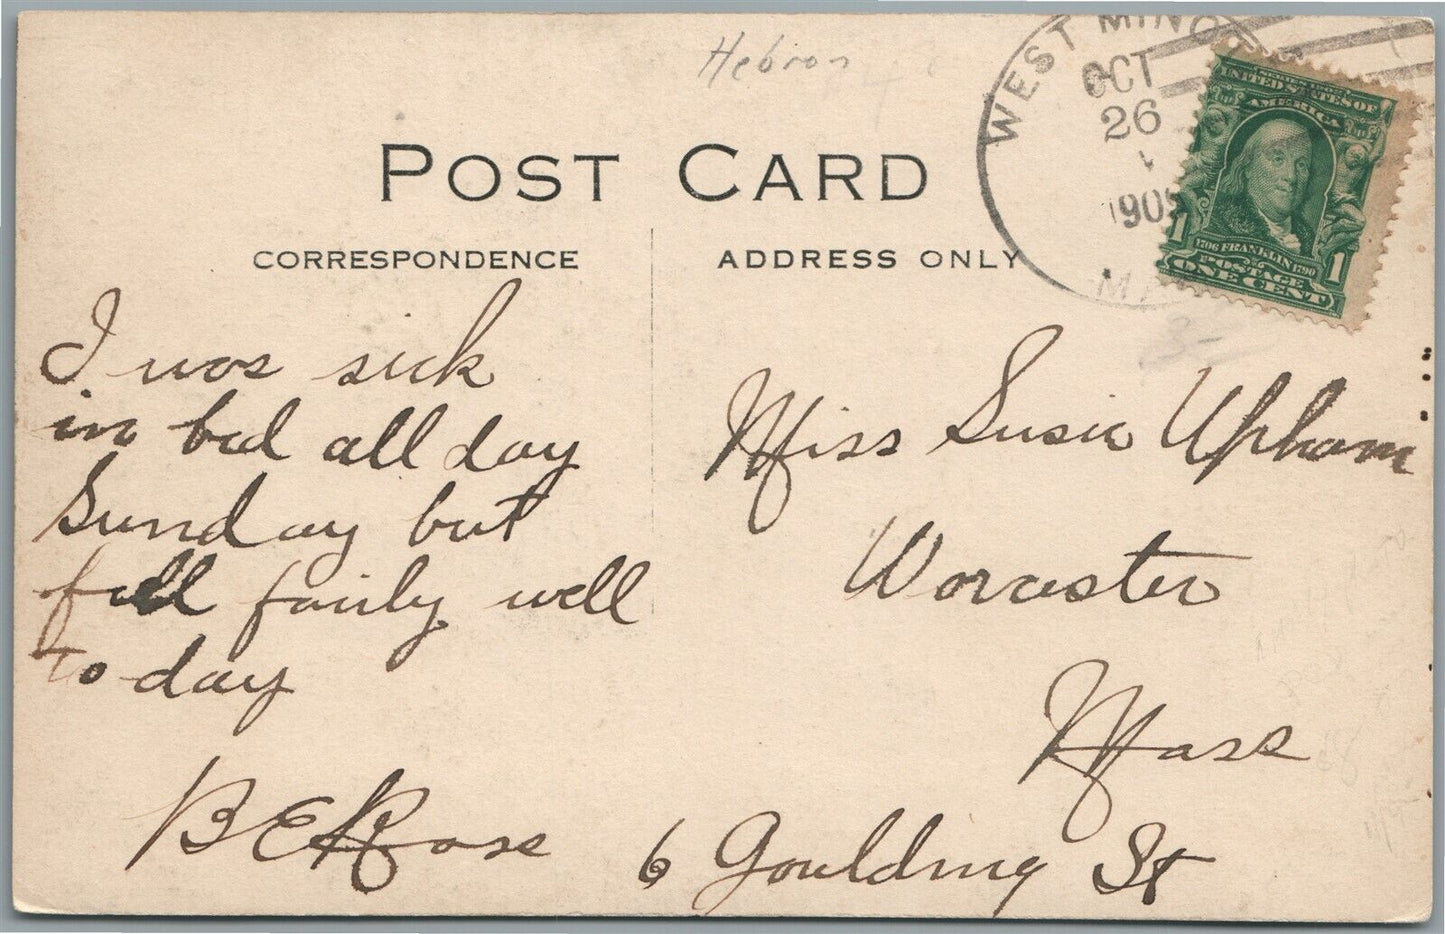 Hebron
WEST MINOT
OCT
26
190
MA
SERIES 1902
UNITED STATES OF
AMERICA
1 1
1706 FRANKLIN 1790
POSTAGE
ONE CENT
POST CARD
CORRESPONDENCE
ADDRESS ONLY
I was sick
in bed all day
Sunday but
feel fairly well
to day
B E Ross
Miss Susie Upham
Worcester
Mass
6 Goulding St